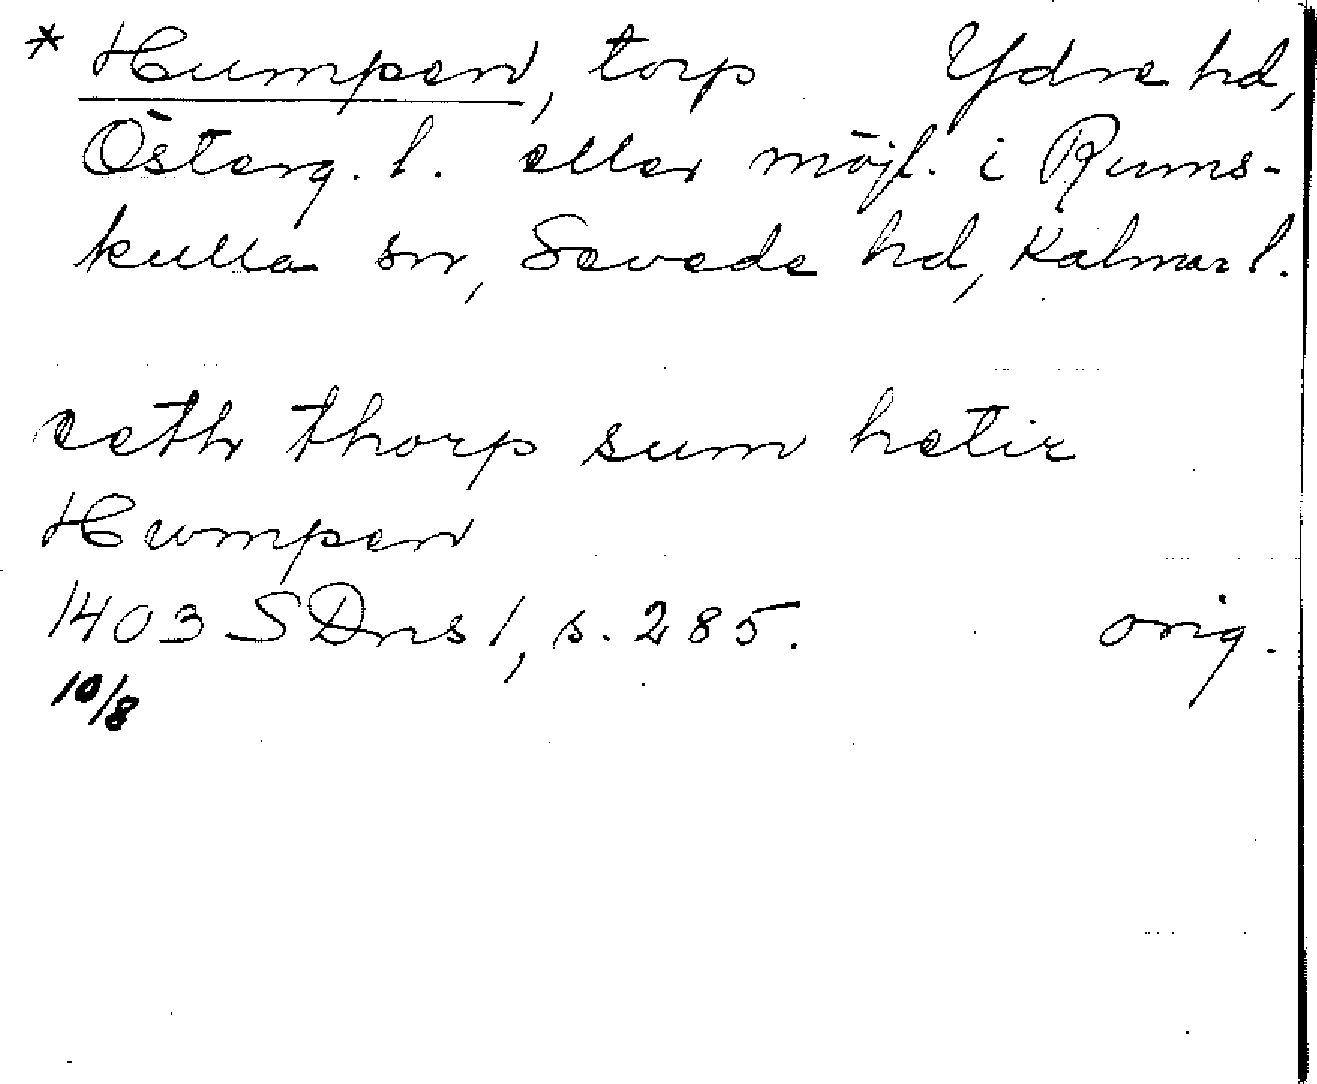 * Humpen, torp Ydre hd,
Österg. l. eller möjl. i Rums-
kulla sn, Sevede hd, Kalmar l.
eeth thorp sum hetir
Hwmpen
1403 SDns 1, s. 285. orig.
10/8